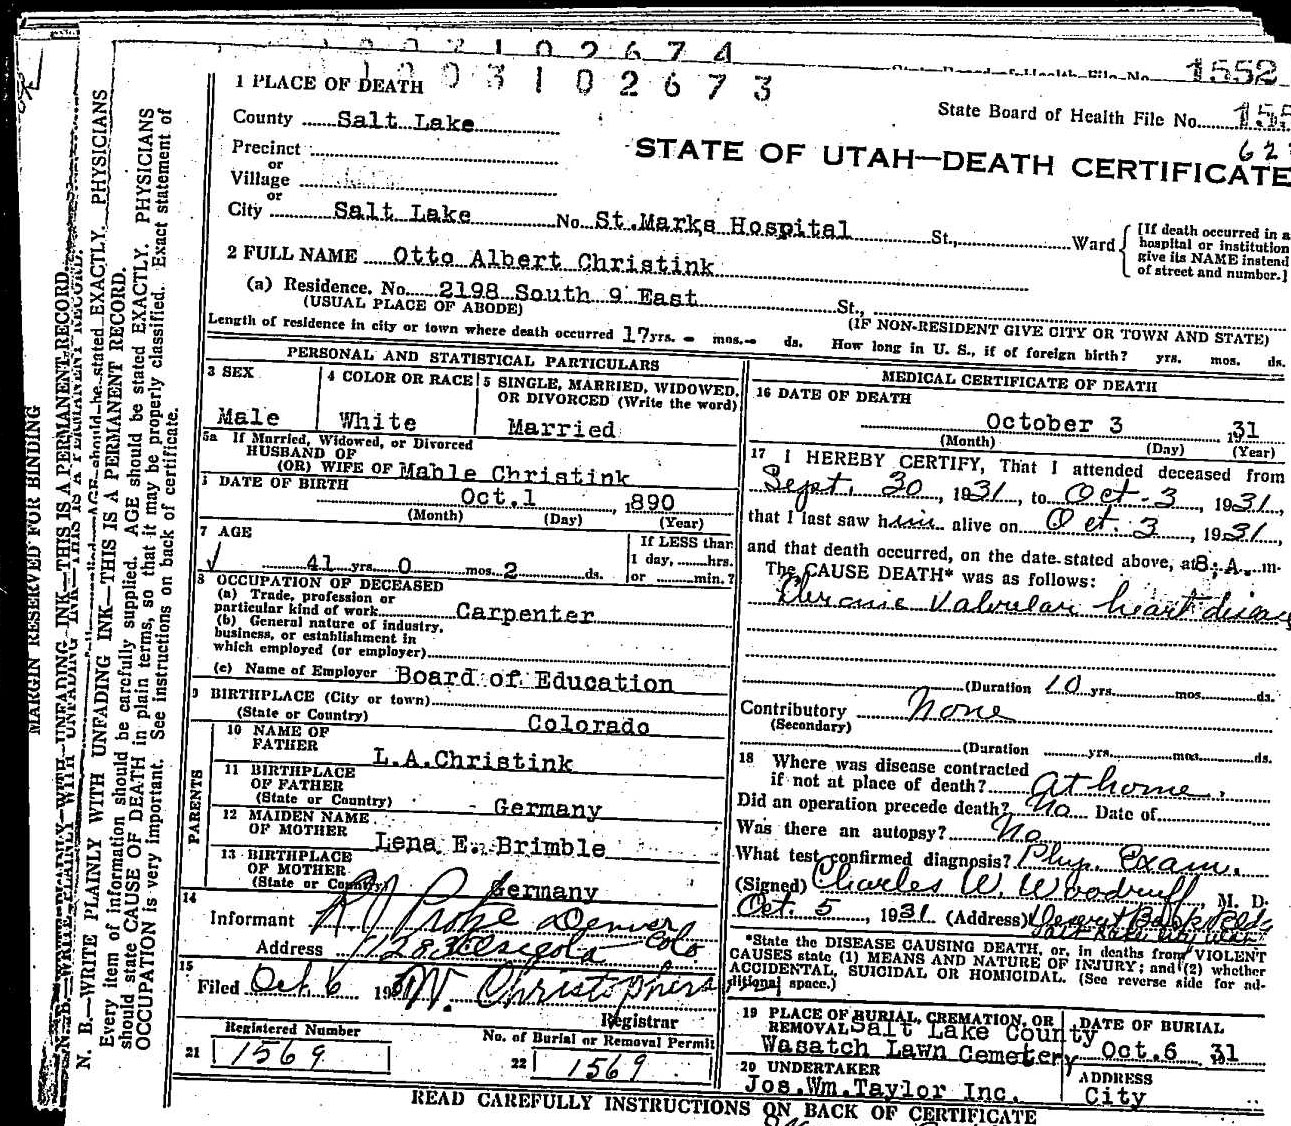 2 6 7 4
1552
1 PLACE OF DEATH 1 0 0 3 1 0 2 6 7 3
State Board of Health File No.
County Salt Lake
STATE OF UTAH—DEATH CERTIFICATE
Precinct
or
Village
or
City Salt Lake No. St.Marks Hospital St., Ward
[If death occurred in a
hospital or institution
give its NAME instead
of street and number.]
2 FULL NAME Otto Albert Christink
(a) Residence. No. 2198 South 9 East St.,
(USUAL PLACE OF ABODE) (IF NON-RESIDENT GIVE CITY OR TOWN AND STATE)
Length of residence in city or town where death occurred 17 yrs. - mos. - ds. How long in U. S., if of foreign birth? yrs. mos. ds.
PERSONAL AND STATISTICAL PARTICULARS
3 SEX
Male
4 COLOR OR RACE
White
5 SINGLE, MARRIED, WIDOWED,
OR DIVORCED (Write the word)
Married
5a If Married, Widowed, or Divorced
HUSBAND OF
(OR) WIFE OF Mable Christink
DATE OF BIRTH
Oct.1 , 1890
(Month) (Day) (Year)
7 AGE
41 yrs. 0 mos. 2 ds.
If LESS than
1 day, hrs.
or min.?
8 OCCUPATION OF DECEASED
(a) Trade, profession or
particular kind of work Carpenter
(b) General nature of industry,
business, or establishment in
which employed (or employer)
(c) Name of Employer Board of Education
9 BIRTHPLACE (City or town)
(State or Country) Colorado
PARENTS
10 NAME OF
FATHER
L.A.Christink
11 BIRTHPLACE
OF FATHER
(State or Country) Germany
12 MAIDEN NAME
OF MOTHER
Lena E. Brimble
13 BIRTHPLACE
OF MOTHER
(State or Country) Germany
14
Informant Denver
Address Colo
15
Filed Oct. 6 1931
Registrar
Registered Number
21 1569
No. of Burial or Removal Permit
22 1569
MEDICAL CERTIFICATE OF DEATH
16 DATE OF DEATH
October 3 1931
(Month) (Day) (Year)
17 I HEREBY CERTIFY, That I attended deceased from
Sept. 30, 1931, to Oct. 3, 1931,
that I last saw him alive on Oct. 3, 1931,
and that death occurred, on the date stated above, at 8: A. m.
The CAUSE DEATH* was as follows:
Chronic Valvular heart disease
(Duration 10 yrs. mos. ds.
Contributory None
(Secondary)
(Duration yrs. mos. ds.
18 Where was disease contracted
if not at place of death? at home.
Did an operation precede death? No Date of
Was there an autopsy? No
What test confirmed diagnosis? Phys. Exam.
(Signed) Charles W. Woodruff M. D.
Oct. 5, 1931 (Address)
*State the DISEASE CAUSING DEATH, or, in deaths from VIOLENT
CAUSES state (1) MEANS AND NATURE OF INJURY; and (2) whether
ACCIDENTAL, SUICIDAL OR HOMICIDAL. (See reverse side for ad-
ditional space.)
19 PLACE OF BURIAL, CREMATION, OR
REMOVAL Salt Lake County
Wasatch Lawn Cemetery
DATE OF BURIAL
Oct.6 31
20 UNDERTAKER
Jos.Wm.Taylor Inc.
ADDRESS
City
READ CAREFULLY INSTRUCTIONS ON BACK OF CERTIFICATE
MARGIN RESERVED FOR BINDING
N. B.—WRITE PLAINLY WITH UNFADING INK—THIS IS A PERMANENT RECORD.
Every item of information should be carefully supplied. AGE should be stated EXACTLY. PHYSICIANS
should state CAUSE OF DEATH in plain terms, so that it may be properly classified. Exact statement of
OCCUPATION is very important. See instructions on back of certificate.